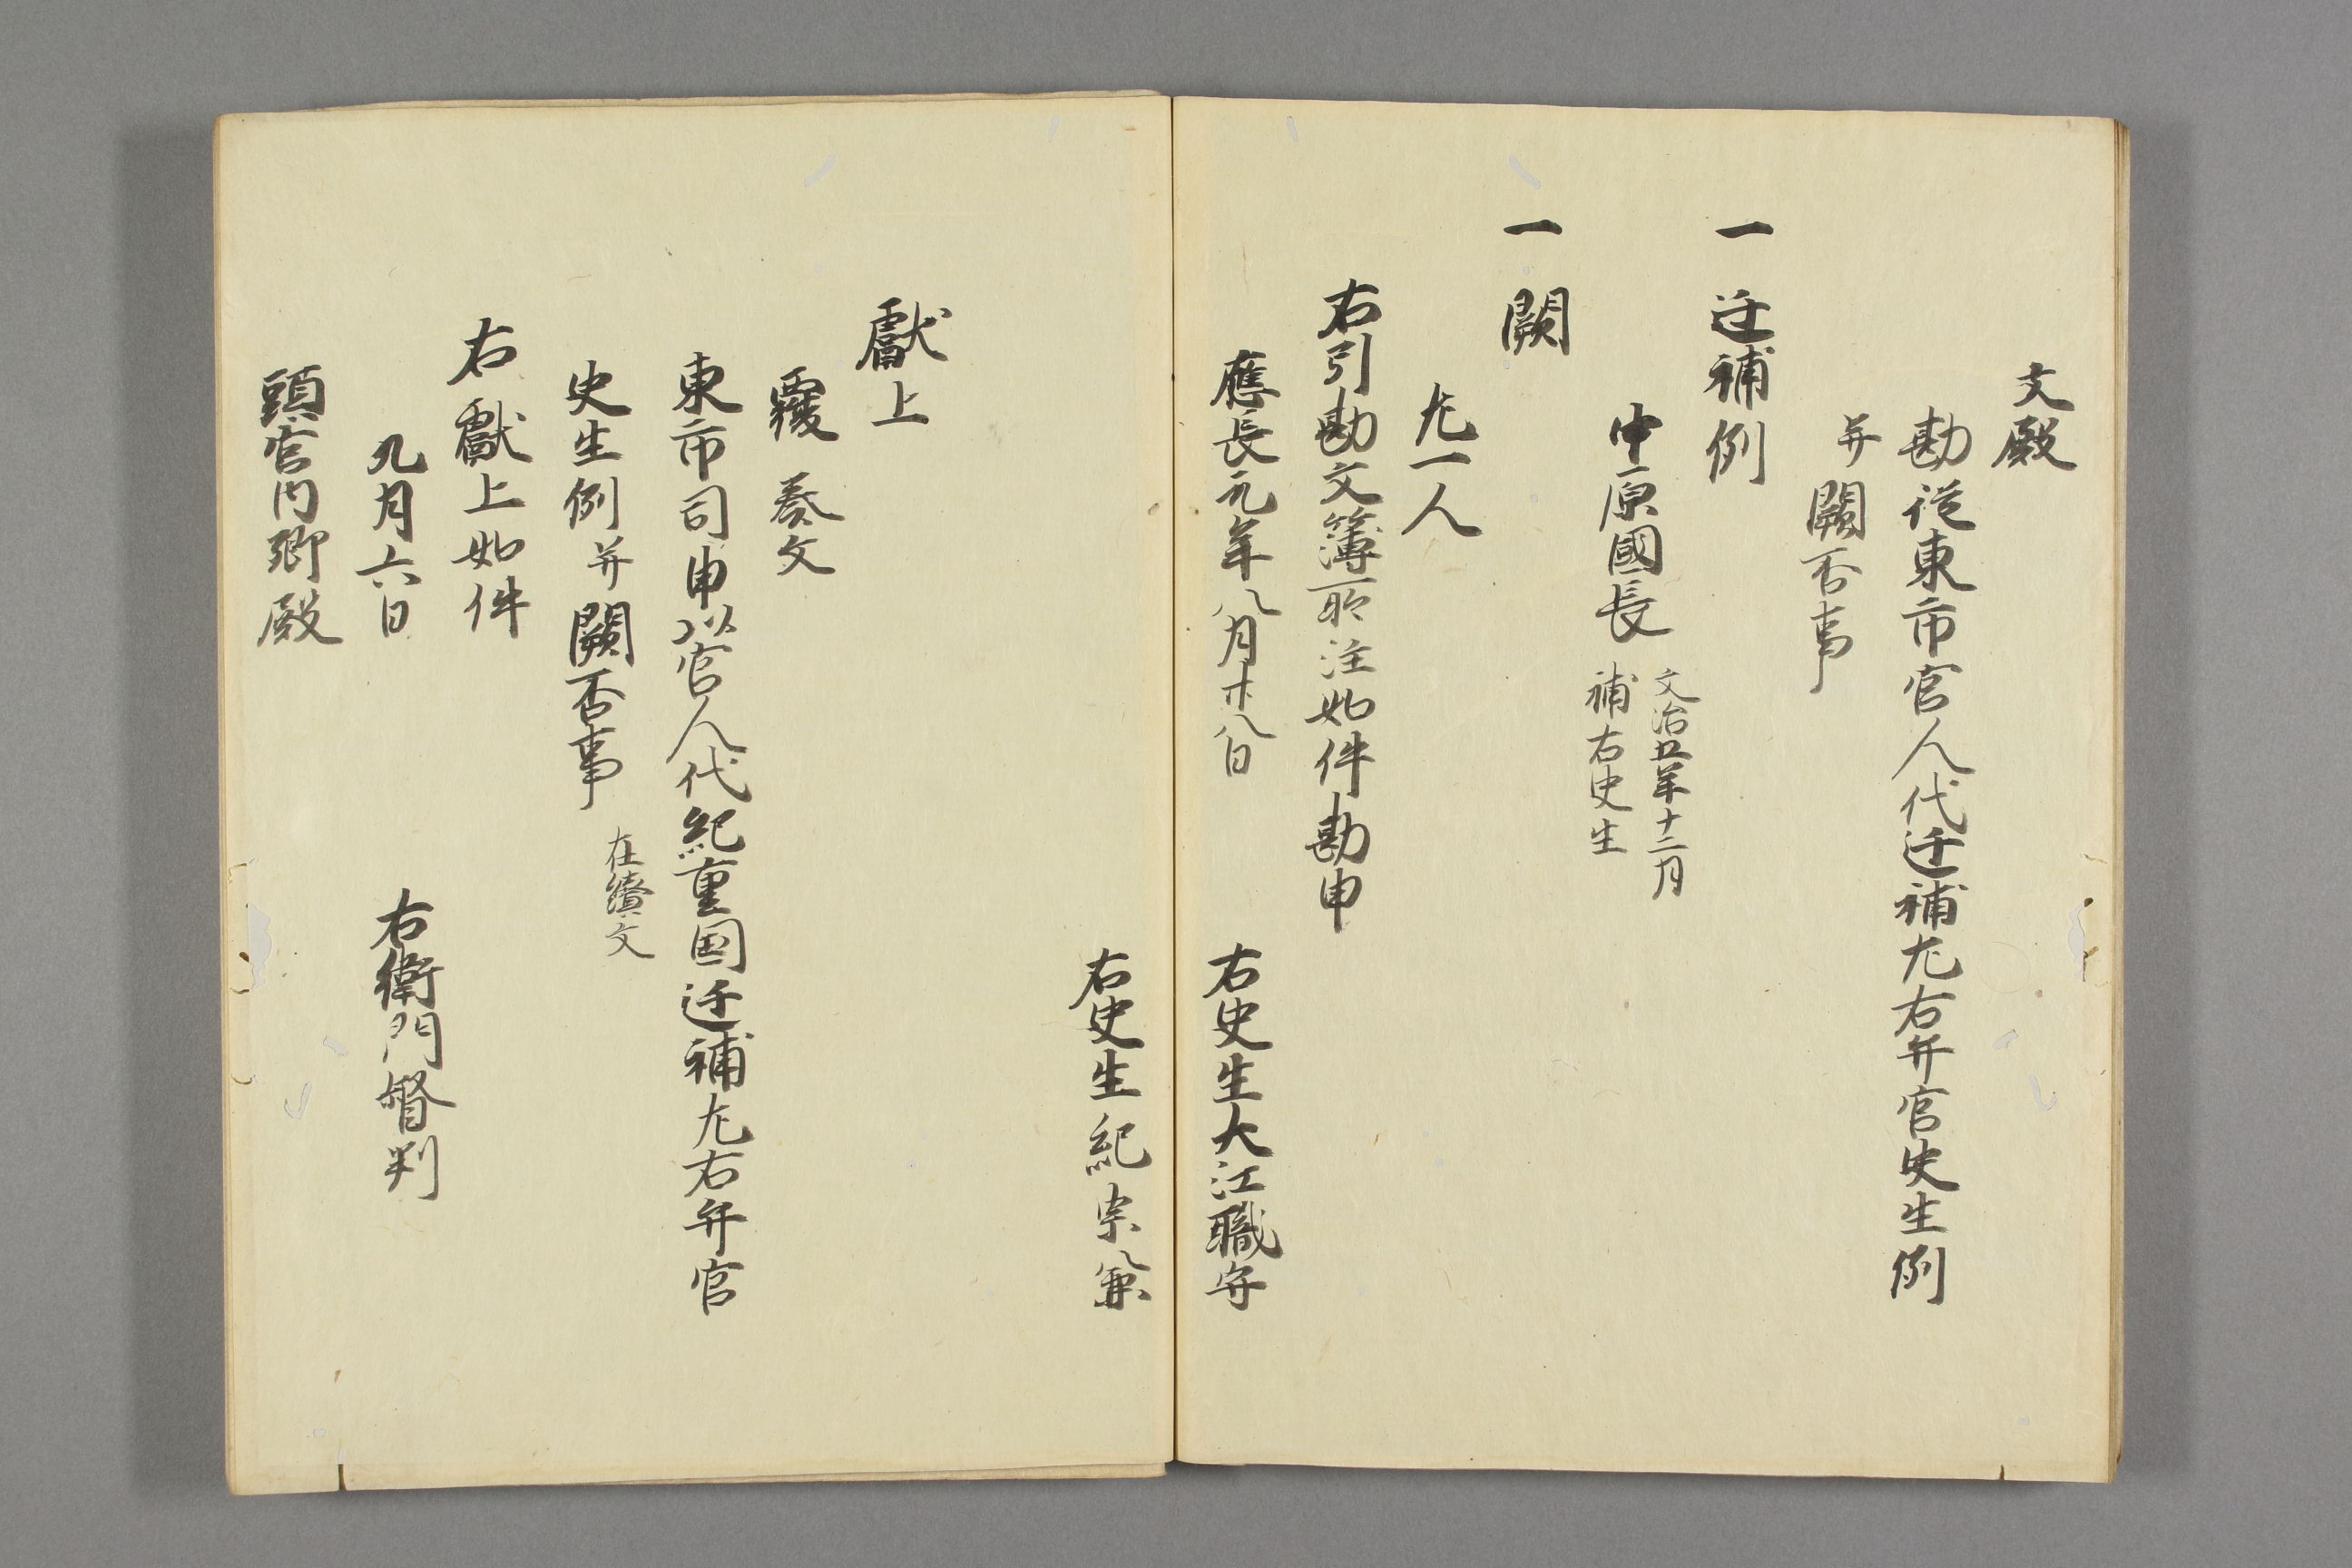 文殿
勘従東市官人代迁補左右弁官史生例
并闕否事
一 迁補例
中原國長 文治五年十二月
補右史生
一 闕
左一人
右引勘文簿所注如件勘申
應長元年八月廿八日
右史生大江職守
右史生紀宗兼
獻上
覆奏文
東市司申以官人代紀重国迁補左右弁官
史生例并闕否事 在續文
右獻上如件
九月六日
右衛門督判
頭宮内卿殿